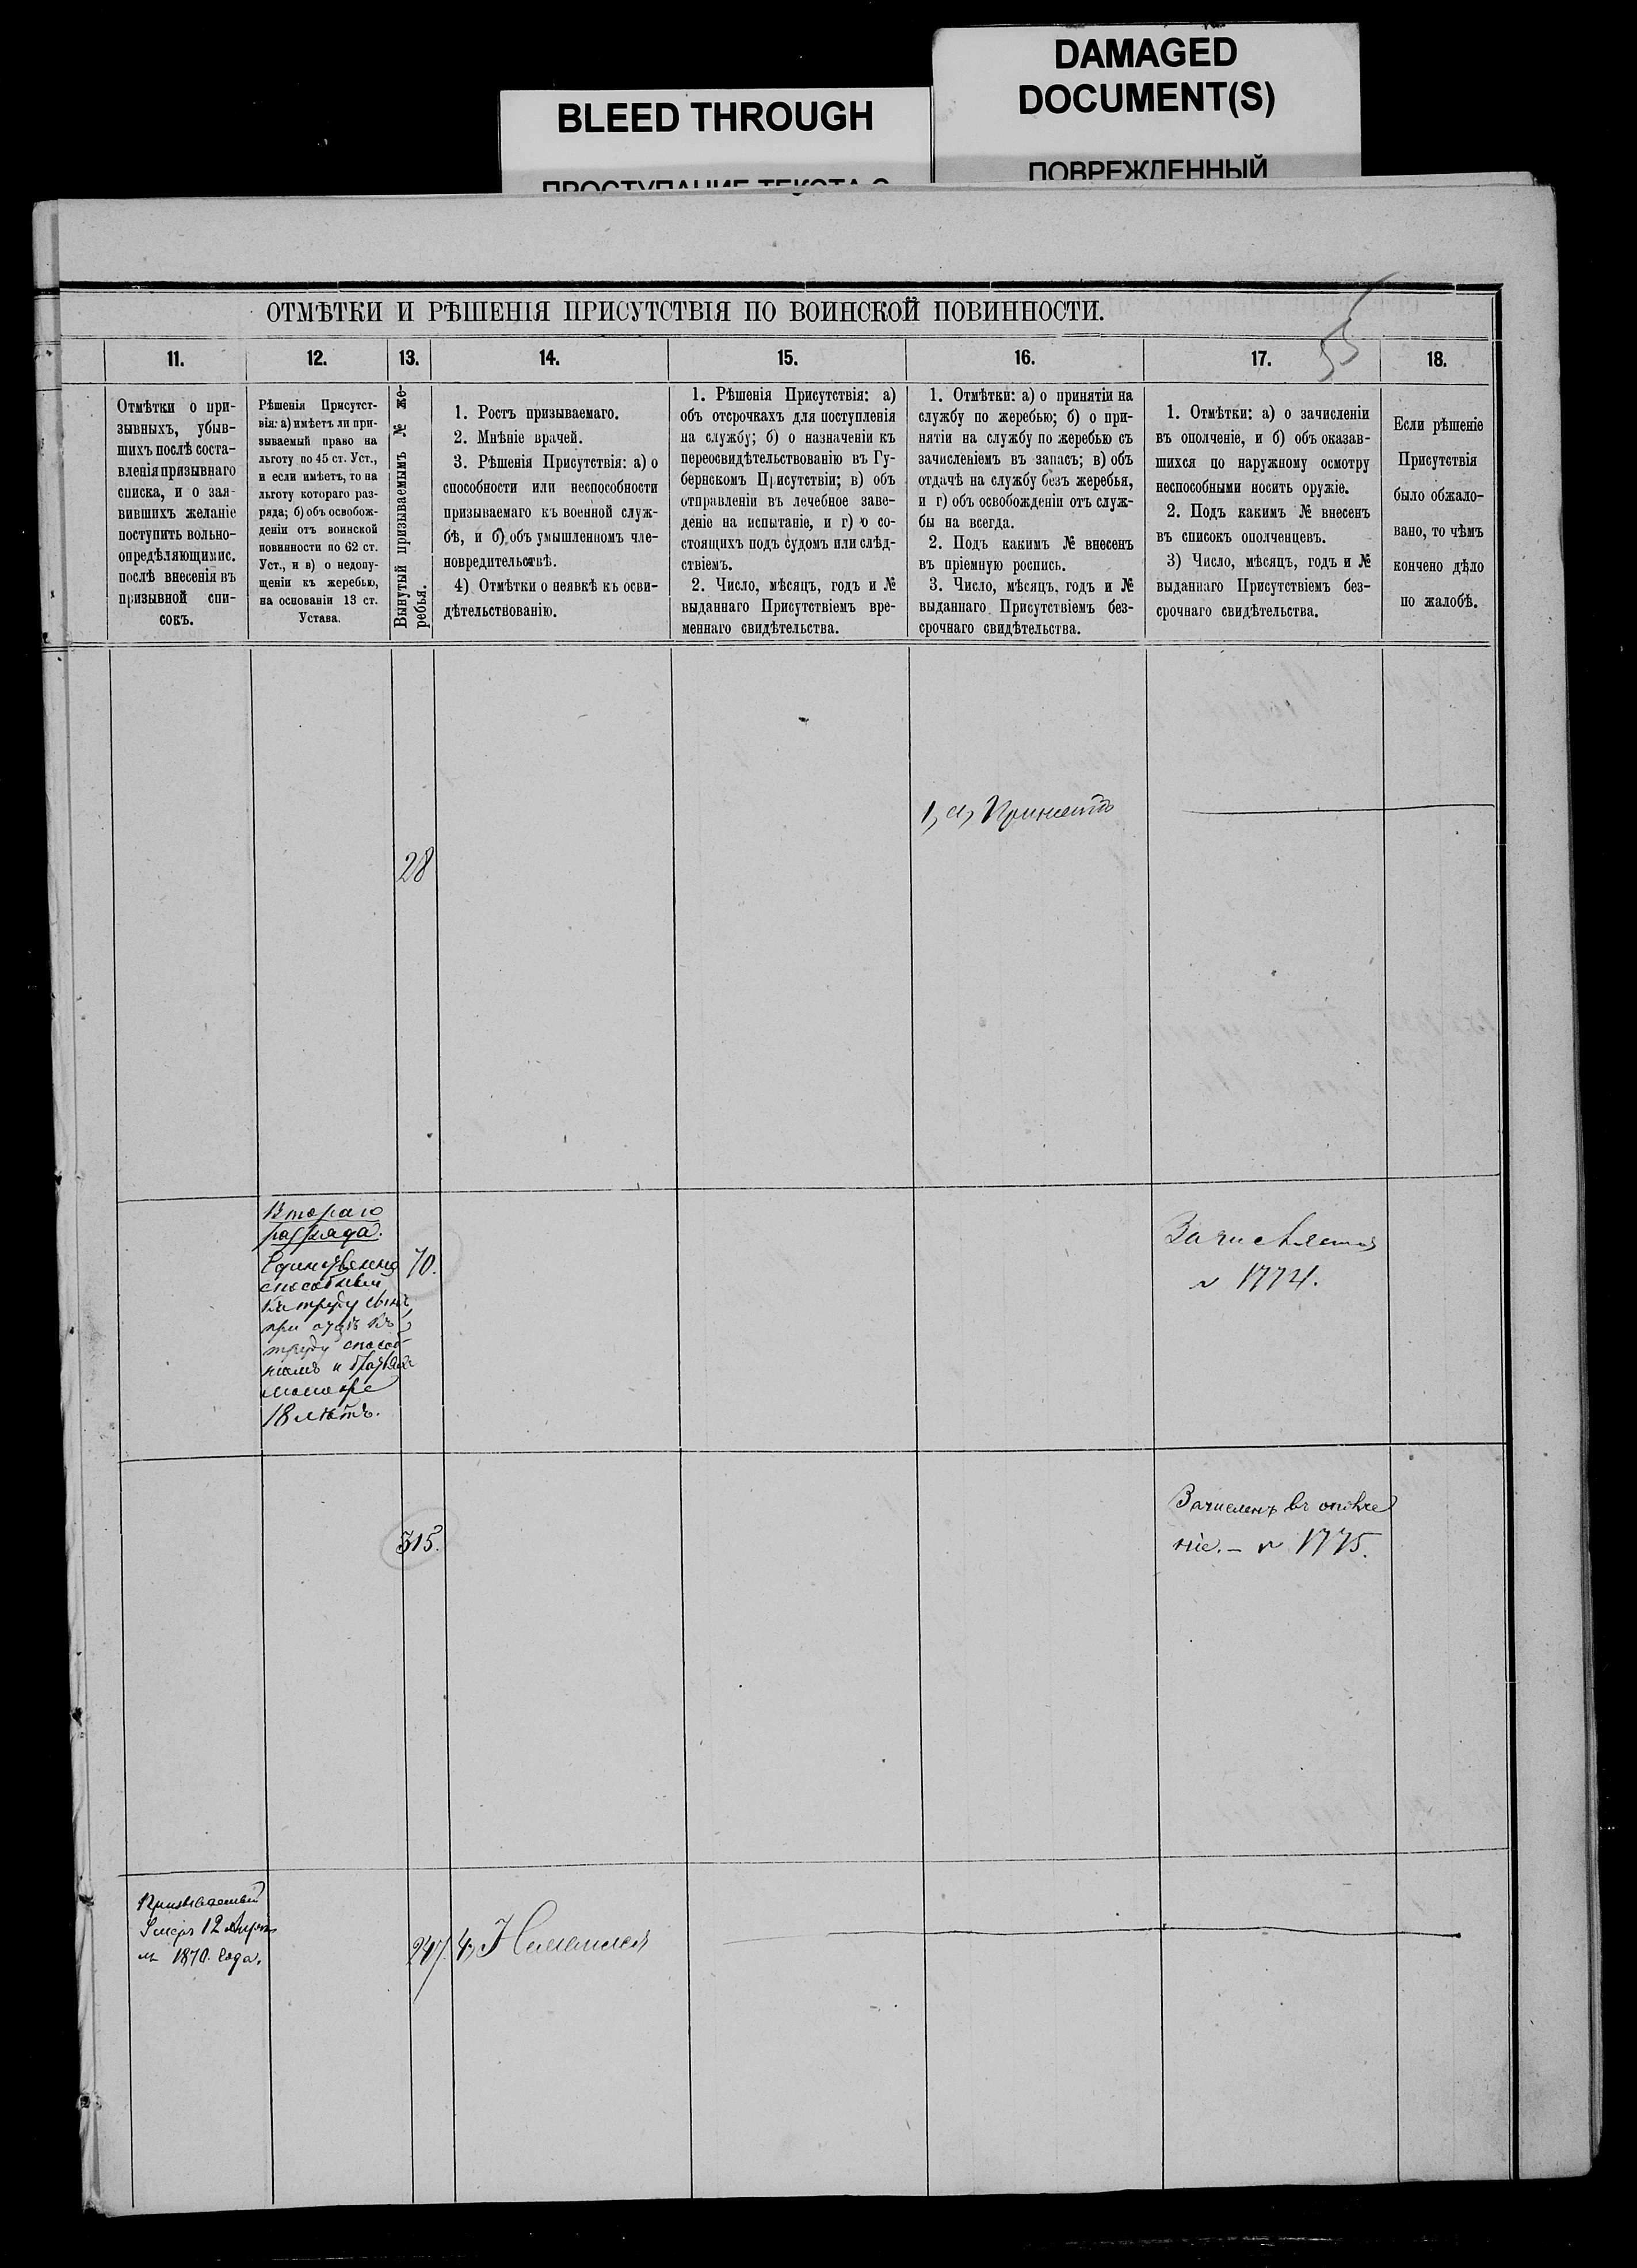 BLEED THROUGH
DAMAGED
DOCUMENT(S)
ПОВРЕЖДЕННЫЙ
55
ОТМѢТКИ И РѢШЕНІЯ ПРИСУТСТВІЯ ПО ВОИНСКОЙ ПОВИННОСТИ.
11.
Отмѣтки о при-
зывныхъ, убыв-
шихъ послѣ соста-
вленія призывнаго
списка, и о зая-
вившихъ желаніе
поступить вольно-
опредѣляющимис.
послѣ внесенія въ
призывной спи-
сокъ.
12.
Рѣшенія Присутст-
вія: а) имѣетъ ли при-
зываемый право на
льготу по 45 ст. Уст.,
и если имѣетъ, то на
льготу котораго раз-
ряда; б) объ освобож-
деніи отъ воинской
повинности по 62 ст.
Уст., и в) о недопу-
щеніи къ жеребью,
на основаніи 13 ст.
Устава.
13.
Вынутый призываемымъ № же-
ребья.
14.
1. Ростъ призываемаго.
2. Мнѣніе врачей.
3. Рѣшенія Присутствія: а) о
способности или неспособности
призываемаго къ военной служ-
бѣ, и б) объ умышленномъ чле-
новредительствѣ.
4) Отмѣтки о неявкѣ къ осви-
дѣтельствованію.
15.
1. Рѣшенія Присутствія: а)
объ отсрочкахъ для поступленія
на службу; б) о назначеніи къ
переосвидѣтельствованію въ Гу-
бернскомъ Присутствіи; в) объ
отправленіи въ лечебное заве-
деніе на испытаніе, и г) о со-
стоящихъ подъ судомъ или слѣд-
ствіемъ.
2. Число, мѣсяцъ, годъ и №
выданнаго Присутствіемъ вре-
меннаго свидѣтельства.
16.
1. Отмѣтки: а) о принятіи на
службу по жеребью; б) о при-
нятіи на службу по жеребью съ
зачисленіемъ въ запасъ; в) объ
отдачѣ на службу безъ жеребья,
и г) объ освобожденіи отъ служ-
бы на всегда.
2. Подъ какимъ № внесенъ
въ пріемную роспись.
3. Число, мѣсяцъ, годъ и №
выданнаго Присутствіемъ без-
срочнаго свидѣтельства.
17.
1. Отмѣтки: а) о зачисленіи
въ ополченіе, и б) объ оказав-
шихся по наружному осмотру
неспособными носить оружіе.
2. Подъ какимъ № внесенъ
въ списокъ ополченцевъ.
3) Число, мѣсяцъ, годъ и №
выданнаго Присутствіемъ без-
срочнаго свидѣтельства.
18.
Если рѣшеніе
Присутствія
было обжало-
вано, то чѣмъ
кончено дѣло
по жалобѣ.
28
1, а, Принятъ
Втораго
разряда.
Единственно
способный
къ труду сынъ
при отцѣ къ
труду способ-
номъ и братьяхъ
моложе
18 лѣтъ.
70.
1774.
315.
Зачисленъ въ ополче
ніе. – № 1775.
Призываемый
Умеръ 12 Апрѣ
ля 1870 года.
247.
4,